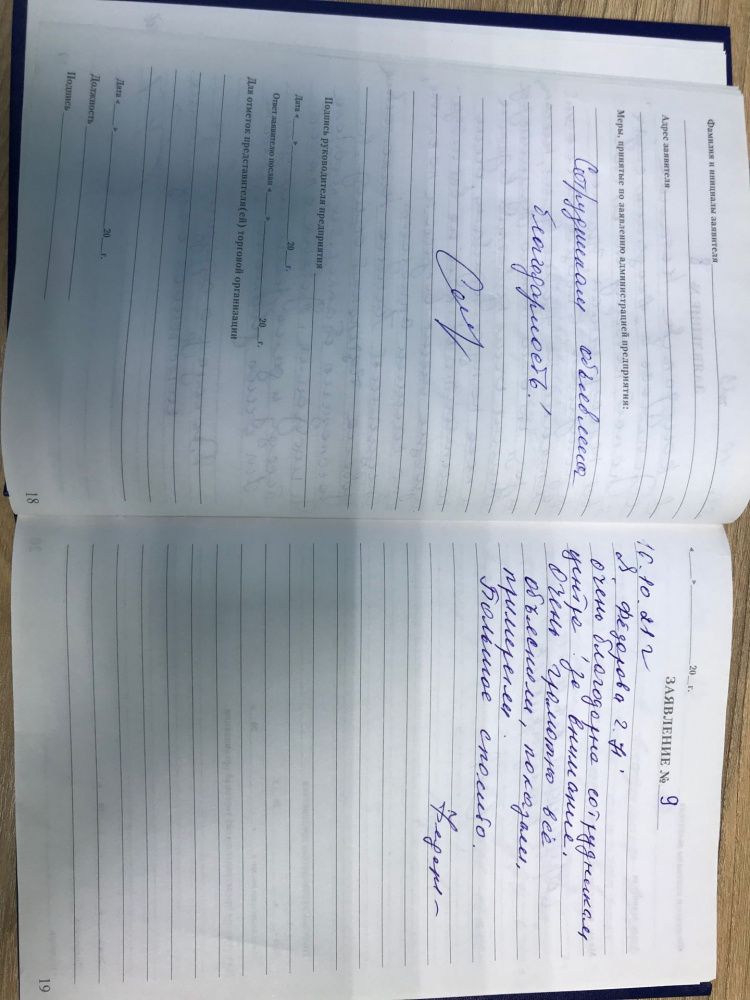 Фамилия и инициалы заявителя
Адрес заявителя
Меры, принятые по заявлению администрацией предприятия:
Сотрудникам объявлена
благодарность!
Подпись руководителя предприятия
Дата «____» ____________ 20__ г.
Ответ заявителю послан «____» ____________ 20__ г.
Для отметок представителя(ей) торговой организации
Дата «____» ____________ 20__ г.
Должность
Подпись
18
«____» ____________ 20__ г.
ЗАЯВЛЕНИЕ № 9
16.10.21 г
Я, Федорова Г.А.
очень благодарна сотрудникам
центра, за внимание.
Очень грамотно всё
объяснили, показали,
примерели.
Большое спасибо.
19